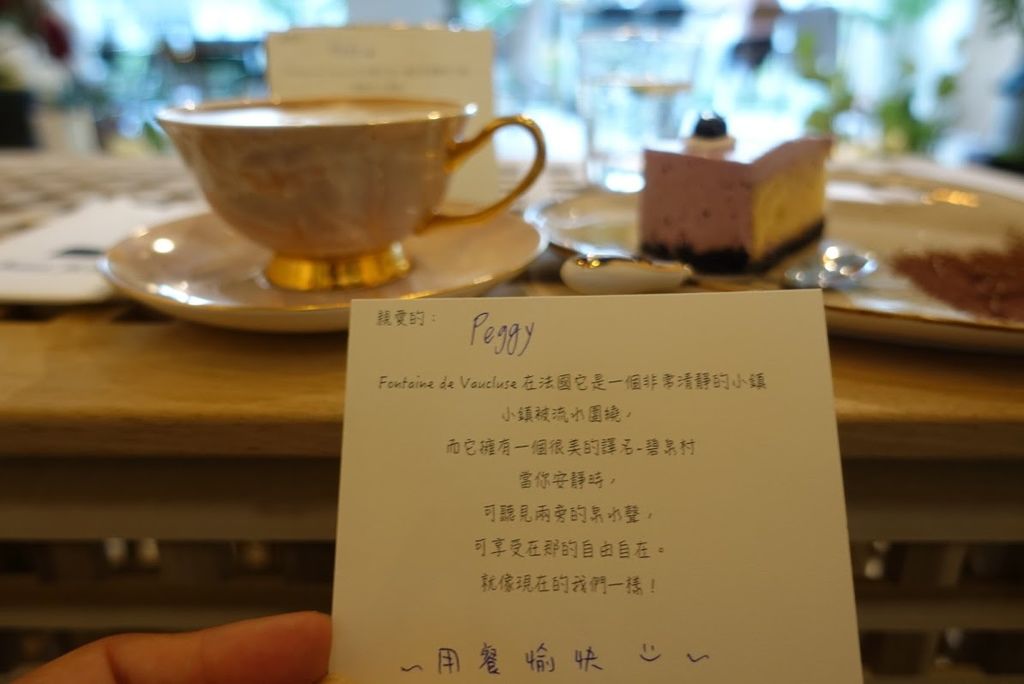 親愛的： Peggy
Fontaine de Vaucluse 在法國它是一個非常清靜的小鎮
小鎮被流水圍繞，
而它擁有一個很美的譯名-碧泉村
當你安靜時，
可聽見兩旁的泉水聲，
可享受在那的自由自在。
就像現在的我們一樣！
~用餐愉快 :) ~